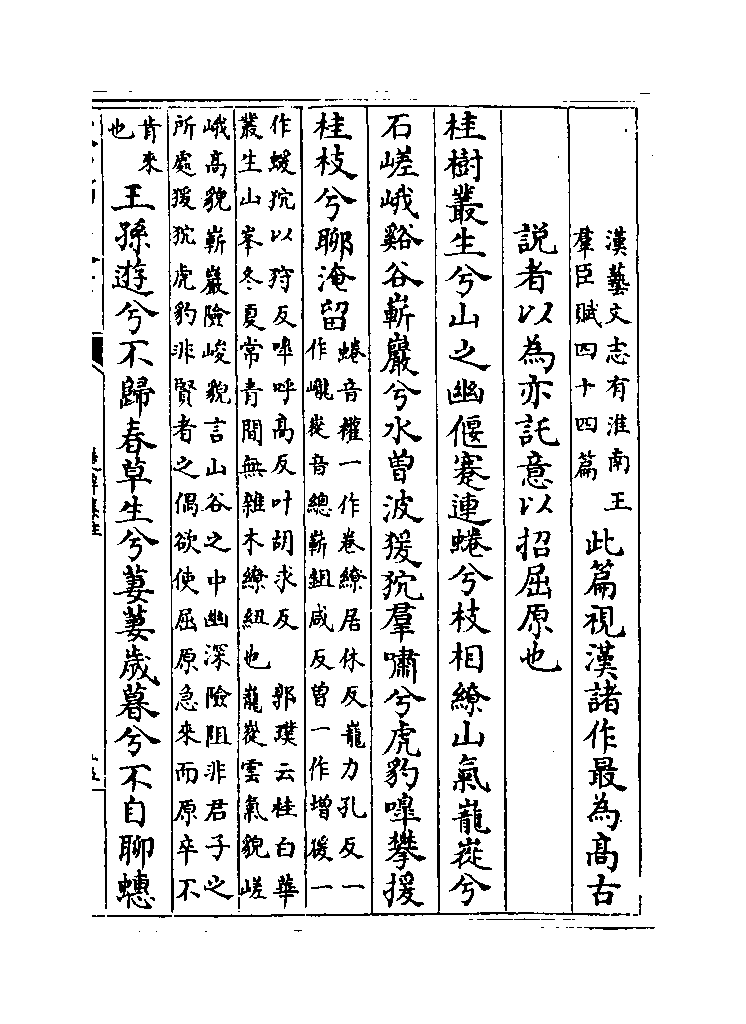 漢藝文志有淮南王
羣臣賦四十四篇
此篇視漢諸作最為髙古
説者以為亦託意以招屈原也
桂樹叢生兮山之幽偃蹇連蜷兮枝相繚山氣巃嵷兮
石嵯峨谿谷嶄巖兮水曾波猨狖羣嘯兮虎豹嘷攀援
桂枝兮聊淹留
蜷音權一作卷繚居休反巃力孔反一
作巄嵷音總嶄鉏咸反曽一作増猨一
作蝯狖以狩反嘷呼髙反叶胡求反　郭璞云桂白華
叢生山峯冬夏常青間無雜木繚紐也巃嵷雲氣貌嵯
峨髙貌嶄巖險峻貌言山谷之中幽深險阻非君子之
所處猨狖虎豹非賢者之偶欲使屈原急來而原卒不
肯來
也
王孫遊兮不歸春草生兮萋萋歳暮兮不自聊蟪